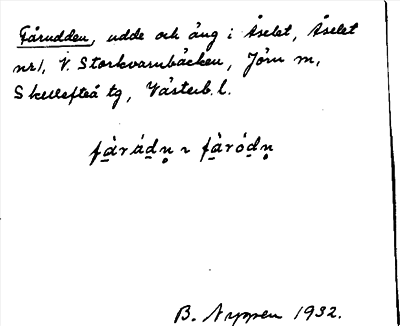 Fårudden, udde och äng i Åselet, Åselet
nr 1, V. Storkvarnbäcken, Jörn sn,
Skellefteå tg, Västerb. l.
fàrádn̥ ~ fàródn̥
B. Nyppen 1932.